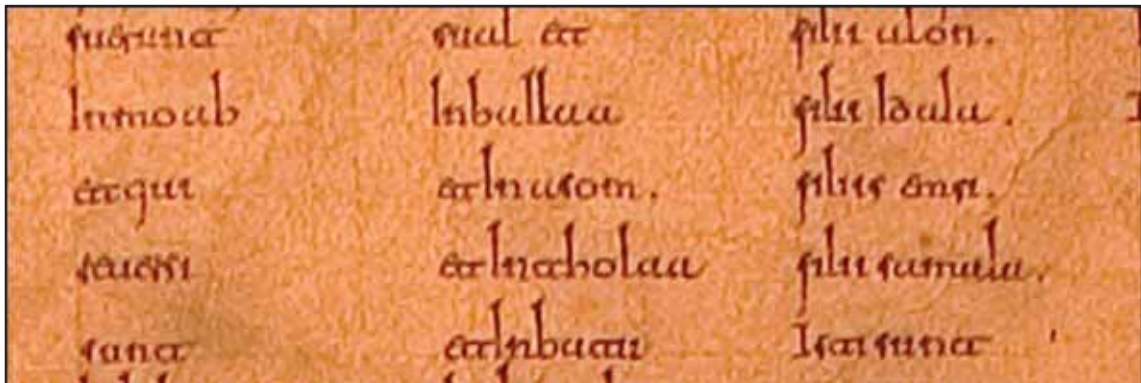 fuerunt
In moab
et qui
reuersi
sunt
sual et
In ballaa
et In asom.
et In tholaa
et In batu
filii alon.
filii Idaia.
filius emri.
filii samaia.
Isti sunt